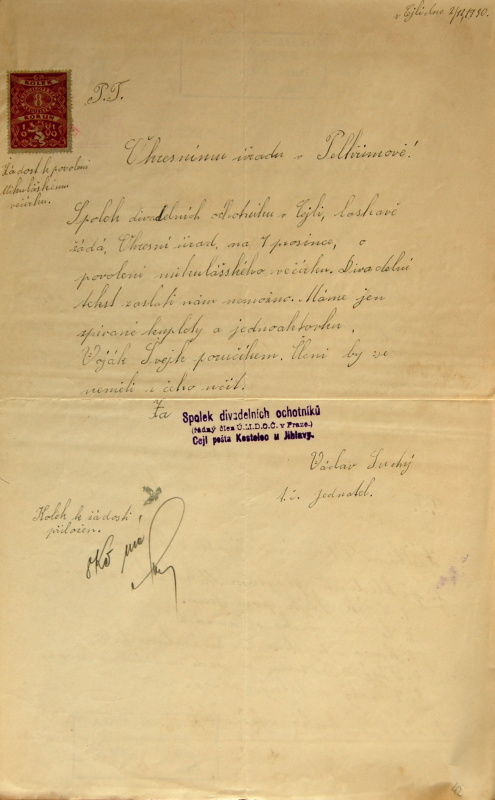 v Cejli, dne 2/12 1930.
ČS
KOLEK
8
KORUN
P.T.
Okresnímu úřadu v Pelhřimově!
Žádost k povolení
Mikulášskému
večírku.
Spolek divadelních ochotníku v Cejli, laskavě
žádá, Okresní úřad, na 7 prosince, o
povolení mikulášského večírku. Divadelní
tekst zaslati nám nemožno. Máme jen
zpívané kuplety a jednoaktovku,
Voják Švejk poručíkem. Členi by se
neměli z čeho učit.
Za
Spolek divadelních ochotníků
(řádný člen Ú.M.D.O.Č. v Praze.)
Cejl pošta Kostelec u Jihlavy.
Václav Suchý
t.č. jednatel.
Kolek k žádosti
přiložen.
42